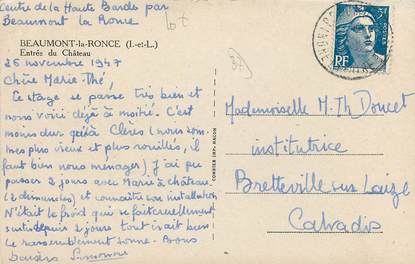 Centre de la Haute Barde par
Beaumont la Ronce
BEAUMONT-la-RONCE (I.-et-L.)
Entrée du Château
26 novembre 1947
Chère Marie-Thé,
Ce stage se passe très bien et
nous voici déjà à moitié. C'est
moins dur qu'à Clères (nous som-
mes plus vieux et plus rouillés, il
faut bien nous ménager) J'ai pu
passer 2 jours avec Marie à château
(2 demanches) et connaître son installation
N'était le froid qui se fait cruellement
sentir depuis 2 jours tout irait bien
Le rassemblement sonne. Bons
baisers Simonne
COMBIER IMP. MACON
RF
Mademoiselle M. Th Doucet
institutrice
Bretteville sur Laize
Calvados